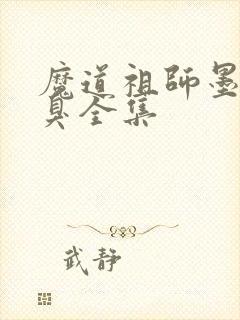 魔道祖師墨
臭全集
武静